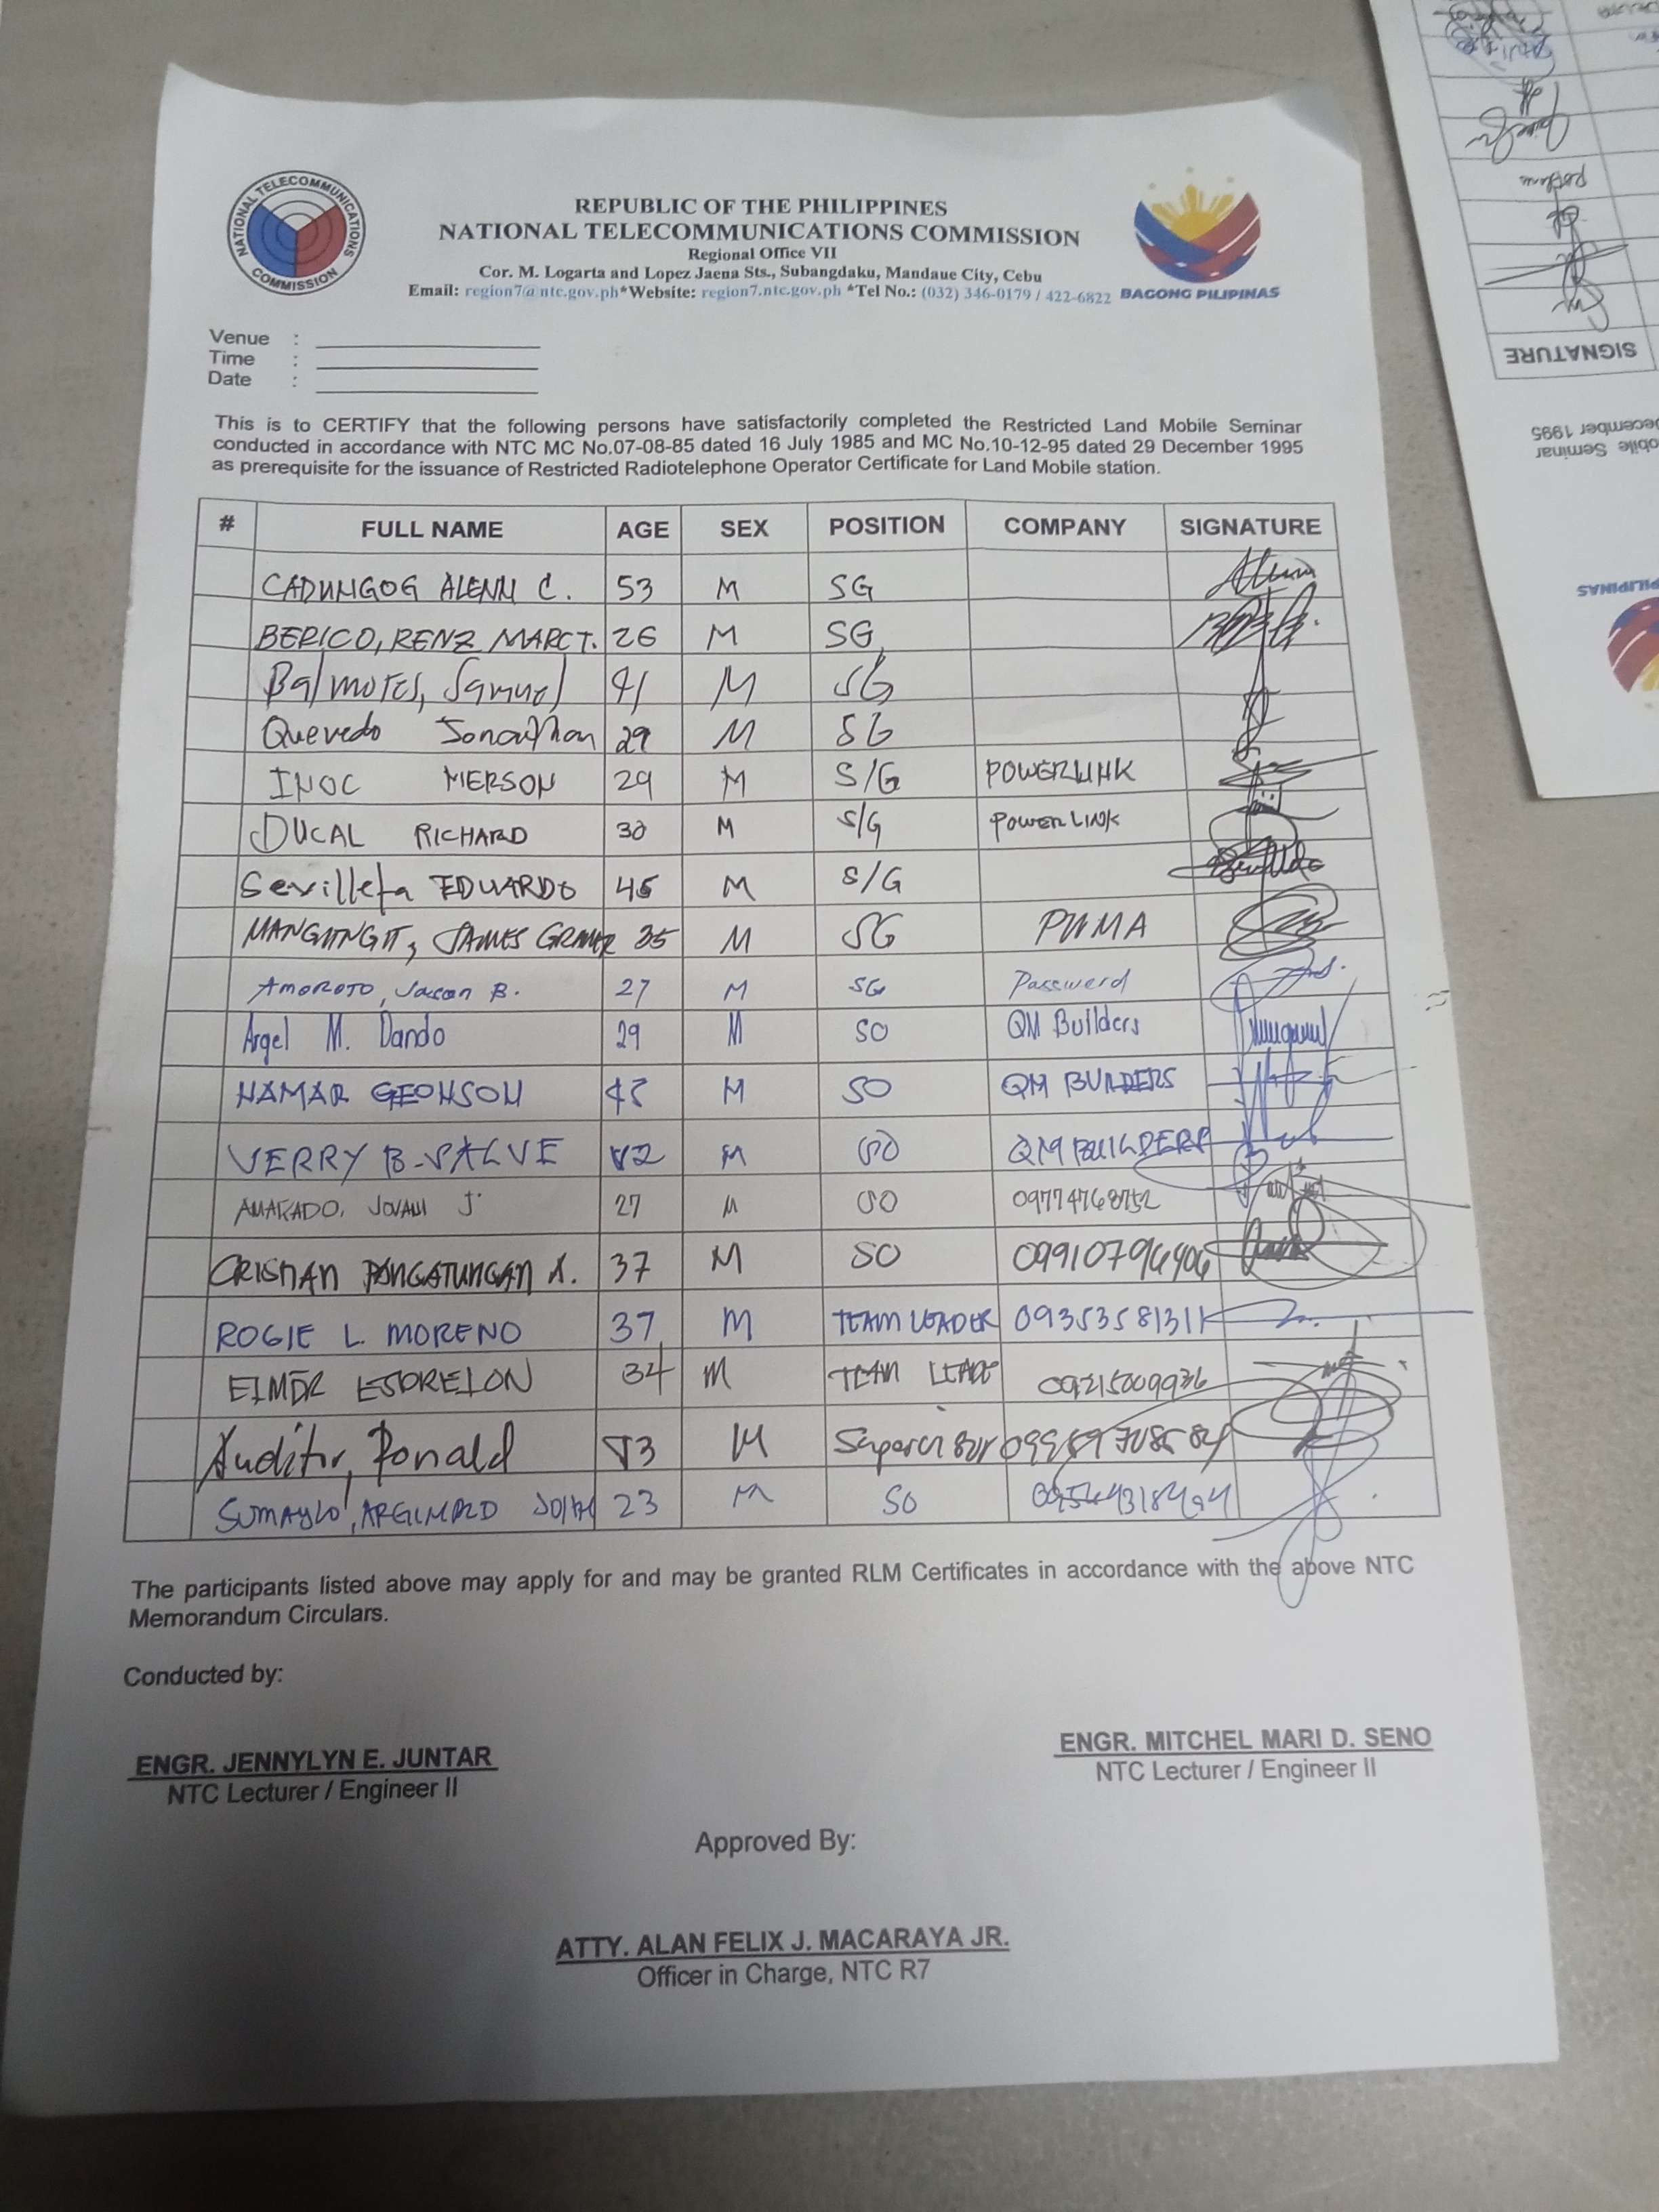 NATIONAL TELECOMMUNICATIONS COMMISSION
REPUBLIC OF THE PHILIPPINES
NATIONAL TELECOMMUNICATIONS COMMISSION
Regional Office VII
Cor. M. Logarta and Lopez Jaena Sts., Subangdaku, Mandaue City, Cebu
Email: region7@ntc.gov.ph*Website: region7.ntc.gov.ph *Tel No.: (032) 346-0179 / 422-6822
BAGONG PILIPINAS
Venue :
Time :
Date :
This is to CERTIFY that the following persons have satisfactorily completed the Restricted Land Mobile Seminar
conducted in accordance with NTC MC No.07-08-85 dated 16 July 1985 and MC No.10-12-95 dated 29 December 1995
as prerequisite for the issuance of Restricted Radiotelephone Operator Certificate for Land Mobile station.
# FULL NAME AGE SEX POSITION COMPANY SIGNATURE
CADUNGOG ALENN C. 53 M SG
BERICO, RENZ MARC T. 26 M SG
Balmores, Samuel 41 M SG
Quevedo Jonathan 29 M SG
INOC MERSON 29 M S/G POWERLINK
DUCAL RICHARD 30 M S/G POWERLINK
Sevilleta EDUARDO 45 M S/G
JAMES 35 M SG PWMA
AMOROTO, Jason B. 27 M SG Password
Argel M. Dando 29 M SO QM Builders
HAMAR GEOHSON M SO QM BUILDERS
VERRY B. SALVE 42 M SO QM BUILDERS
JOVANI J. 27 M SO
CRISTIAN PANGATUNGAN A. 37 M SO
ROGIE L. MORENO 37 M TEAM LEADER
ELMER ESDRELON 34 M TEAM LEADER
Auditor, Ronald M Supervisor
SUMAYLO, 23 M SO
The participants listed above may apply for and may be granted RLM Certificates in accordance with the above NTC
Memorandum Circulars.
Conducted by:
ENGR. JENNYLYN E. JUNTAR
NTC Lecturer / Engineer II
ENGR. MITCHEL MARI D. SENO
NTC Lecturer / Engineer II
Approved By:
ATTY. ALAN FELIX J. MACARAYA JR.
Officer in Charge, NTC R7
SIGNATURE
1995
Seminar
PILIPINAS